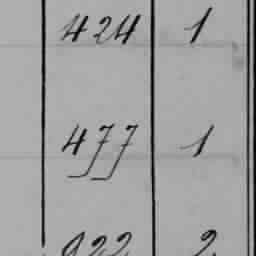 424 1
477 1
922 2